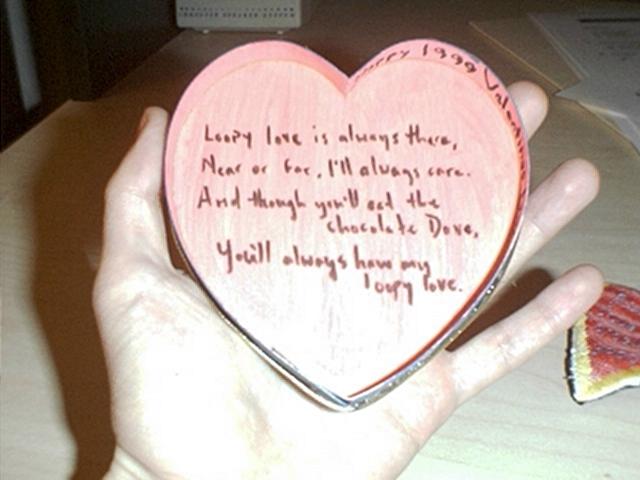 Happy 1999 Valentine's
Loopy love is always there,
Near or far, I'll always care.
And though you'll eat the
chocolate Dove,
You'll always have my
loopy love.